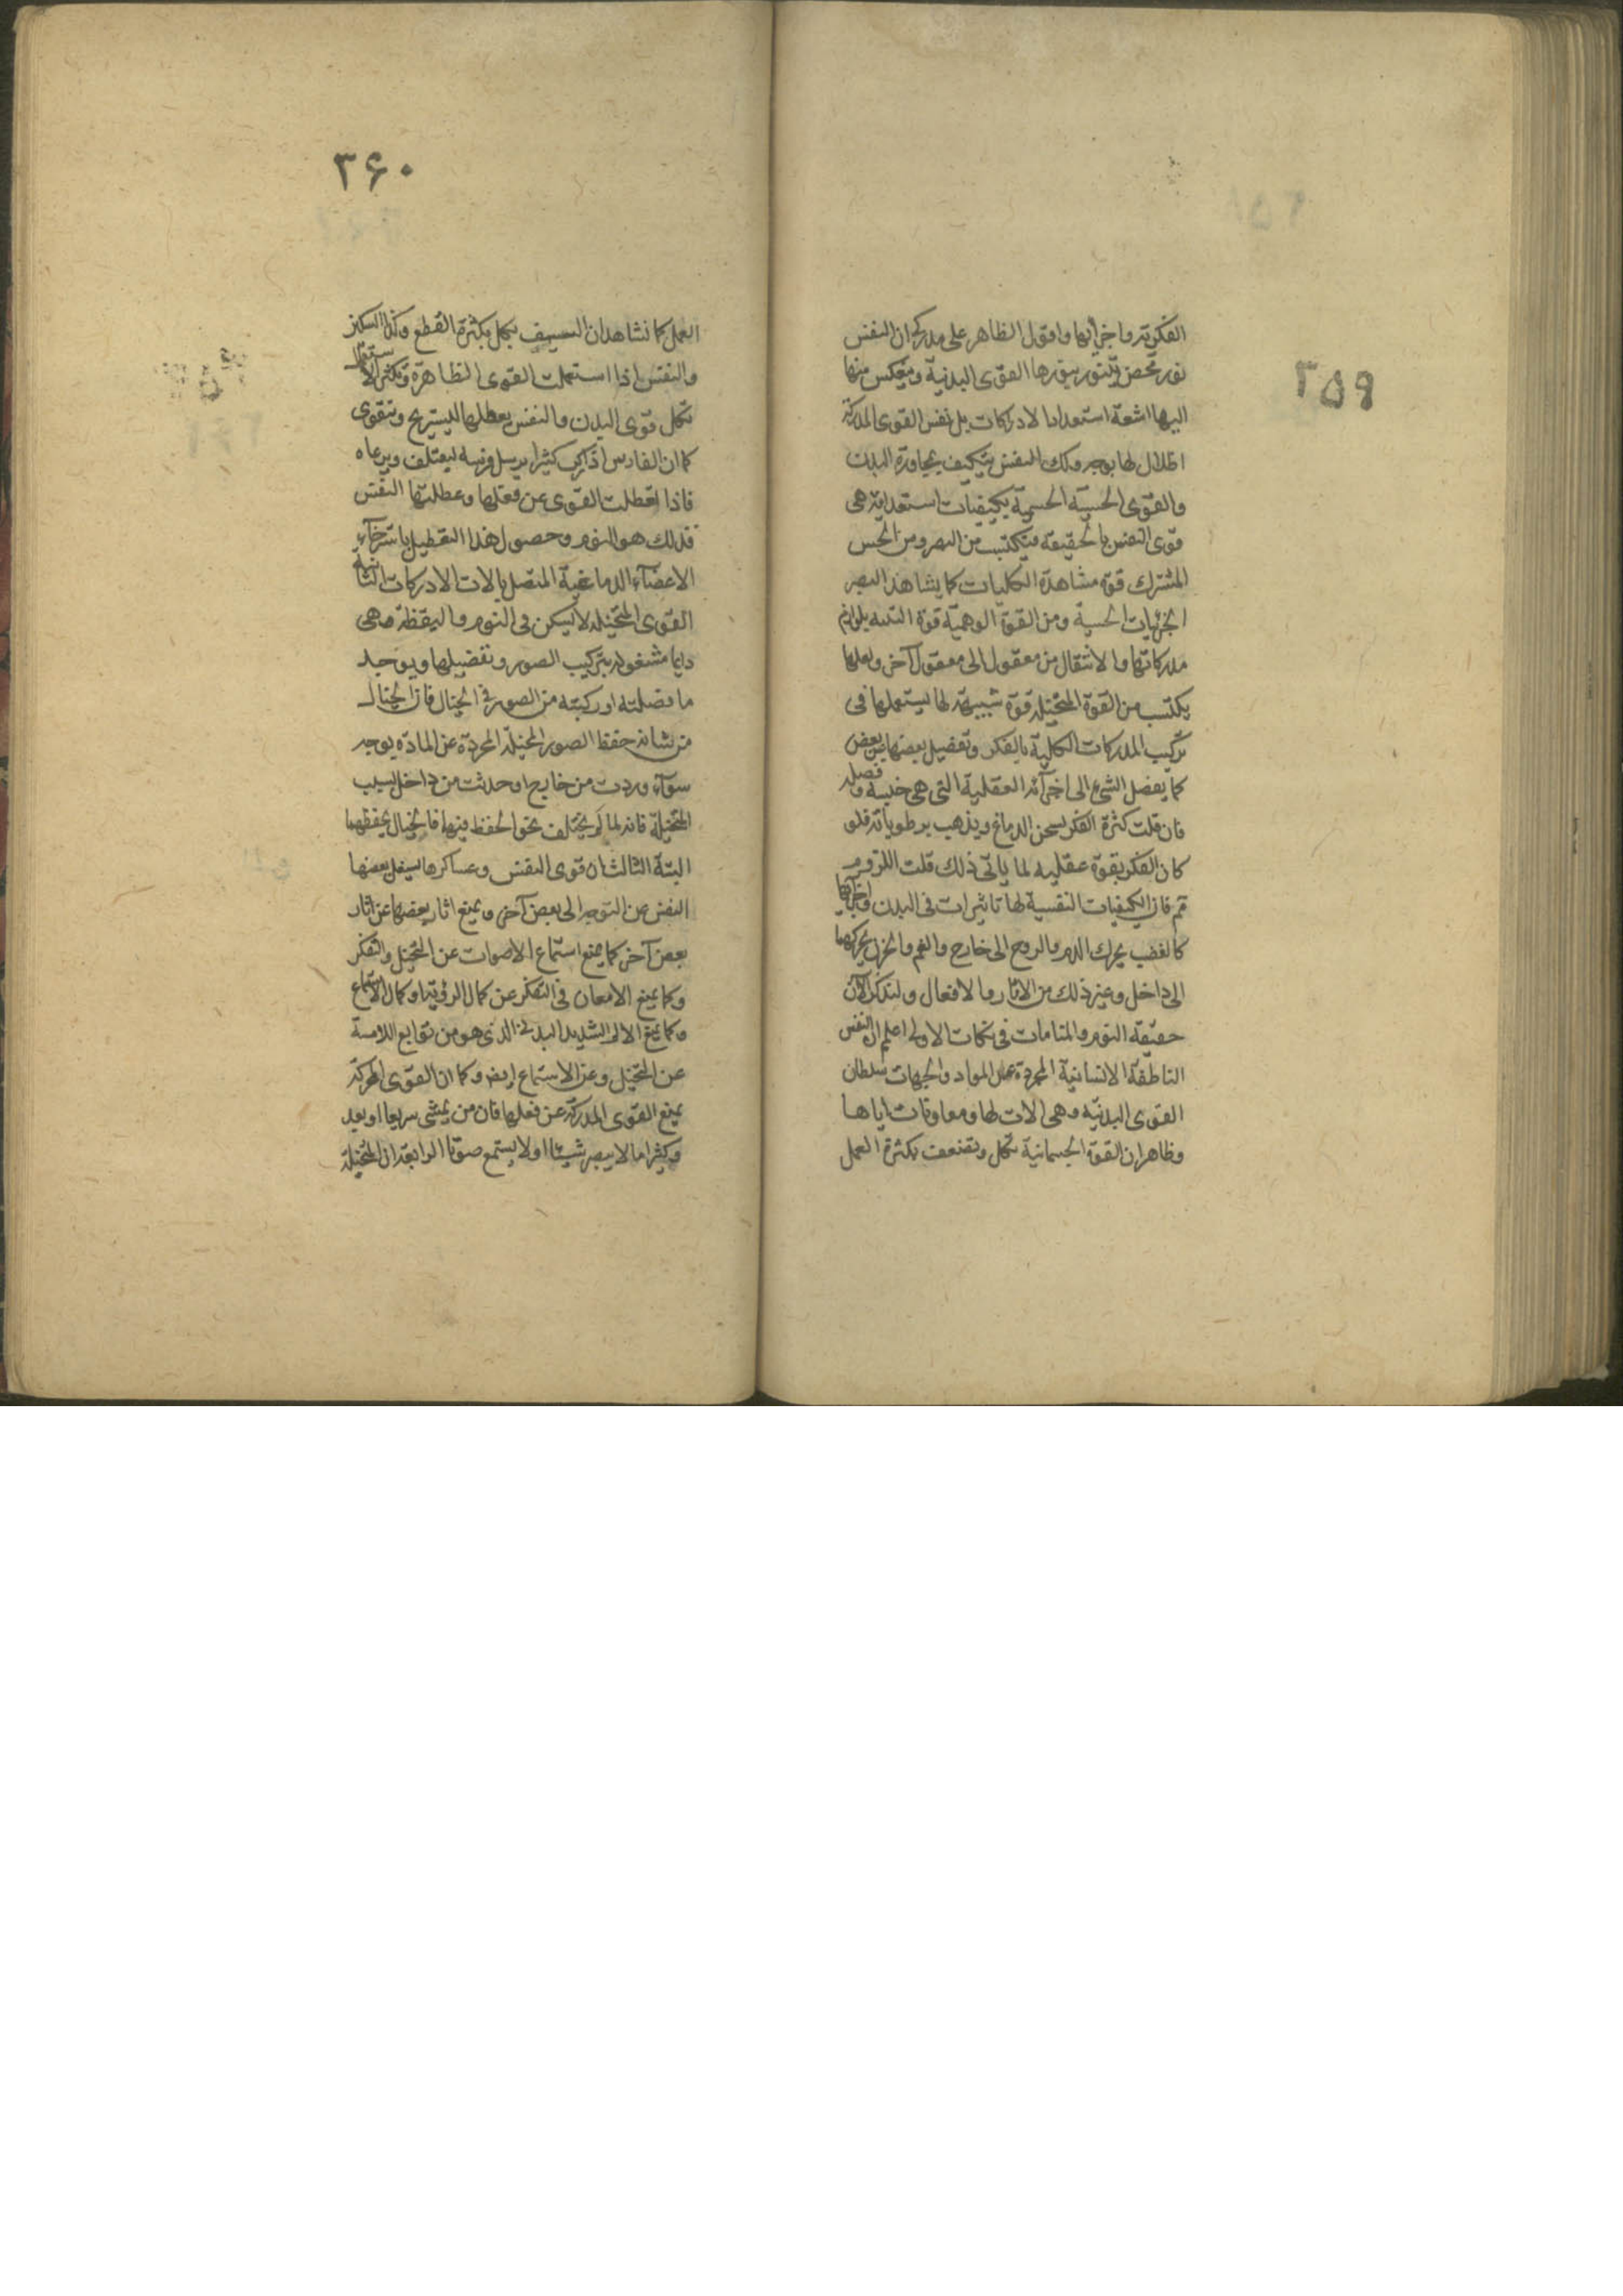 ٣٥٩
الفكرية واخرابها واقول الظاهر على مدرك ان النفس
نور محض يتنور بنورها القوى البدنية وينعكس منها
اليها اشعة استعدادا لادراكات بل نفس القوى المدركة
اظلال لها بوجه وتلك النفس يتكيف بمجاورة البدن
والقوى الحسية الجسمية بكيفيات استعدادية هى
قوى النفس بالحقيقة فيكتسب من البصر ومن الحس
المشترك قوة مشاهدة الكليات كما يشاهد البصر
الجزئيات الحسية ومن القوة الوهمية قوة التنبه بلوازم
مدركاتها والانتقال من معقول الى معقول آخر ولعلها
يكتسب من القوة المتخيلة قوة شبيهة لها يستعملها فى
تركيب المدركات الكلية بالفكر وتفصيل بعضها عن بعض
كما يفصل الشئ الى اجزائه العقلية التى هى جنسه وفصله
فان قلت كثرة الفكر يسخن الدماغ ويذهب برطوباته فلو
كان الفكر بقوة عقلية لما ياتى ذلك قلت اللزوم
ثم فان الكيفيات النفسية لها تاثيرات فى البدن واجزائها
كالغضب يحرك الدم والروح الى خارج والغم والحزن يحركهما
الى داخل وغير ذلك من الاثار والافعال ولنذكر الآن
حقيقة النوم والمنامات فى نكات الاولى اعلم ان النفس
الناطقة الانسانية المجردة عن المواد والجهات سلطان
القوى البدنية وهى الات لها ومعاونات اياها
وظاهر ان القوة الجسمانية تكل وتضعف بكثرة العمل
٣۶٠
العمل كما نشاهد ان السيف يكل بكثرة القطع وكذا السكين
والنفس اذا استعملت القوى الظاهرة وتكثر الاستعمال
تكل قوى البدن والنفس يعطلها ليستريح ويتقوى
كما ان الفارس اذا ركب كثيرا يرسل فرسه ليعتلف ويرعاه
فاذا تعطلت القوى عن فعلها وعطلتها النفس
فذلك هو النوم وحصول هذا التعطيل باسترخاء
الاعضاء الدماغية المتصل بالات الادراكات الثانية
القوى المتخيلة لا يسكن فى النوم واليقظة وهى
دايما مشغولة بتركيب الصور وتفصيلها ويوجد
ما فصلته او ركبته من الصور فى الخيال فان الخيال
من شانه حفظ الصور المخيلة المجردة عن المادة يوجد
سواء وردت من خارج او حدثت من داخل بسبب
المتخيلة فانه لما لم يختلف نحو الحفظ فيها فالخيال يحفظهما
البتة الثالث ان قوى النفس وعساكرها يشغل بعضها
النفس عن التوجه الى بعض آخر ويمنع اثار بعضها عن اثار
بعض آخر كما يمنع استماع الاصوات عن التخيل والتفكر
وكما يمنع الامعان فى التفكر عن كمال الرؤية او كمال الاستماع
وكما يمنع الالم الشديد البدنى الذى هو من توابع اللامسة
عن التخيل وعن الاستماع ايضا وكما ان القوى المحركة
يمنع القوى المدركة عن فعلها فان من يمشى سريعا او يعد
وكثيرا ما لا يبصر شيئا او لا يستمع صوتا الرابعة ان المتخيلة